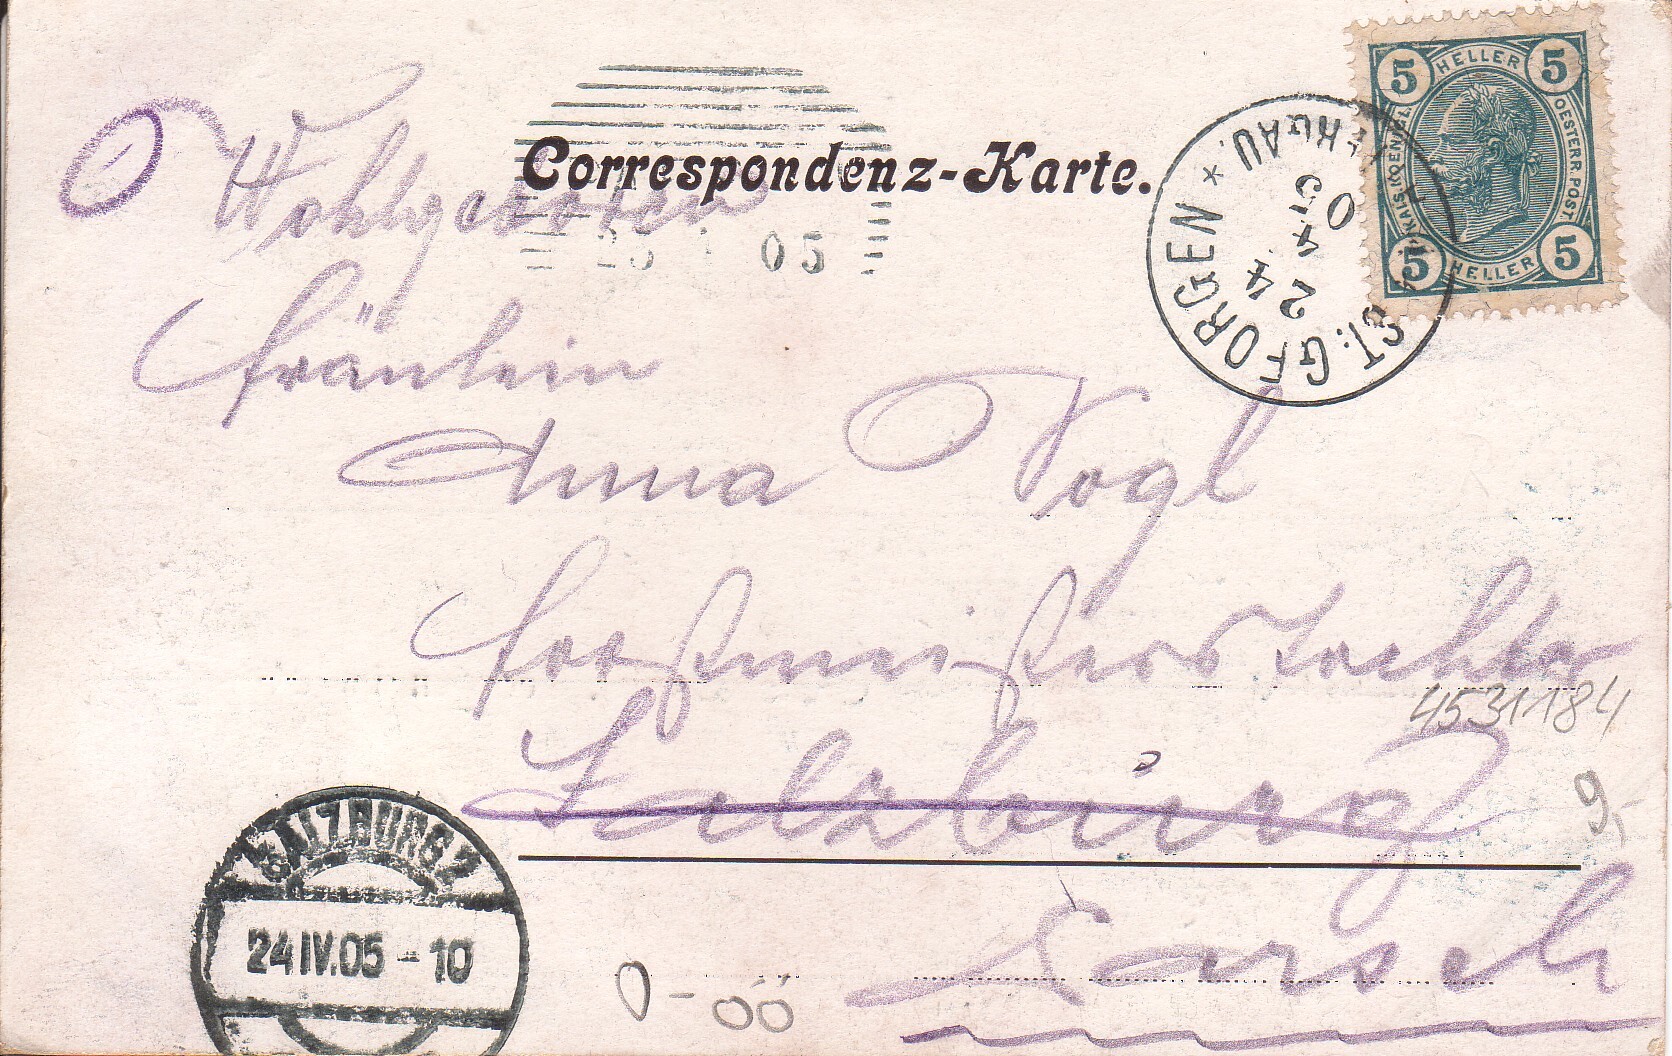 Correspondenz-Karte.
5 HELLER 5
KAIS. KOENIGL. OESTERR. POST.
5 HELLER 5
ST. GEORGEN
24 4 05
25 05
Wohlgeboren
Fräulein
Anna Vogl
Forstmeisters Tochter
4531184
Salzburg
9,-
SALZBURG 2
24 IV.05 - 10
0-OÖ